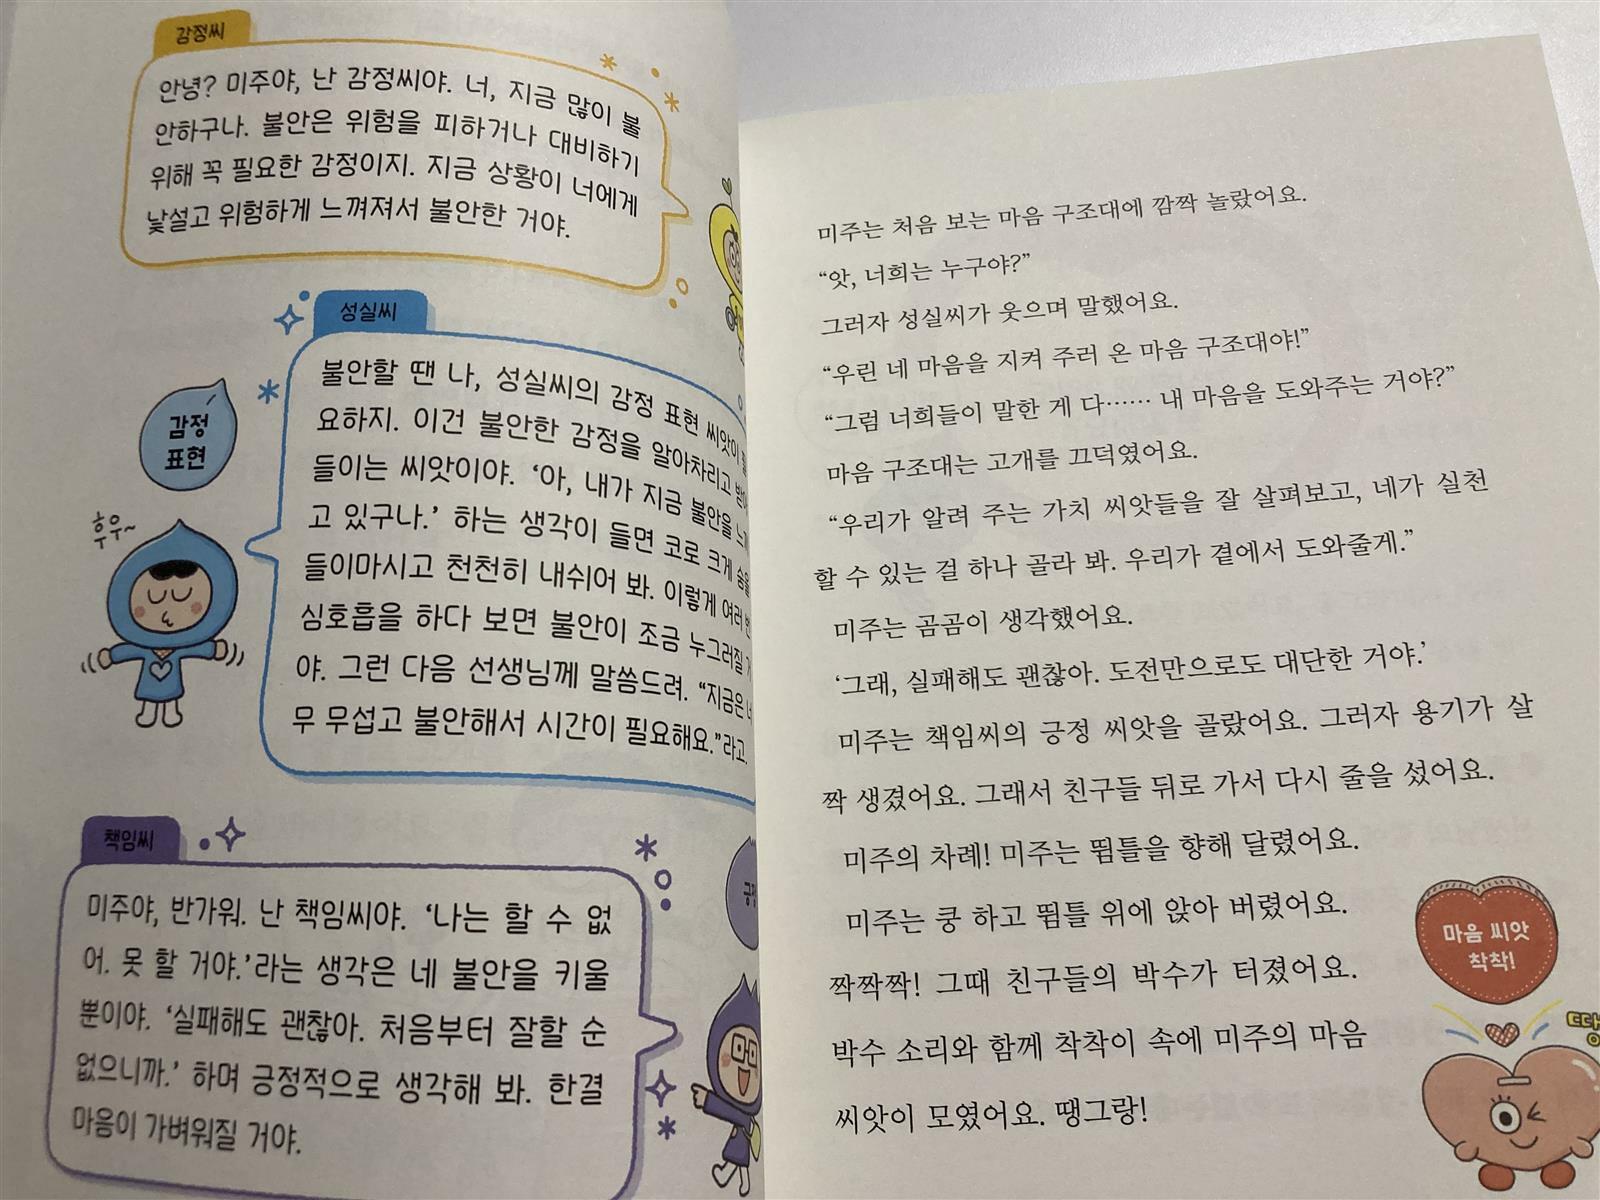 감정씨
안녕? 미주야, 난 감정씨야. 너, 지금 많이 불
안하구나. 불안은 위험을 피하거나 대비하기
위해 꼭 필요한 감정이지. 지금 상황이 너에게
낯설고 위험하게 느껴져서 불안한 거야.
성실씨
불안할 땐 나, 성실씨의 감정 표현 씨앗이
요하지. 이건 불안한 감정을 알아차리고 받아
들이는 씨앗이야. ‘아, 내가 지금 불안을 느끼
고 있구나.’ 하는 생각이 들면 코로 크게 숨을
들이마시고 천천히 내쉬어 봐. 이렇게 여러 번
심호흡을 하다 보면 불안이 조금 누그러질 거
야. 그런 다음 선생님께 말씀드려. “지금은 너
무 무섭고 불안해서 시간이 필요해요.”라고.
감정
표현
후우~
책임씨
미주야, 반가워. 난 책임씨야. ‘나는 할 수 없
어. 못 할 거야.’라는 생각은 네 불안을 키울
뿐이야. ‘실패해도 괜찮아. 처음부터 잘할 순
없으니까.’ 하며 긍정적으로 생각해 봐. 한결
마음이 가벼워질 거야.
미주는 처음 보는 마음 구조대에 깜짝 놀랐어요.
“앗, 너희는 누구야?”
그러자 성실씨가 웃으며 말했어요.
“우린 네 마음을 지켜 주러 온 마음 구조대야!”
“그럼 너희들이 말한 게 다…… 내 마음을 도와주는 거야?”
마음 구조대는 고개를 끄덕였어요.
“우리가 알려 주는 가치 씨앗들을 잘 살펴보고, 네가 실천
할 수 있는 걸 하나 골라 봐. 우리가 곁에서 도와줄게.”
미주는 곰곰이 생각했어요.
‘그래, 실패해도 괜찮아. 도전만으로도 대단한 거야.’
미주는 책임씨의 긍정 씨앗을 골랐어요. 그러자 용기가 살
짝 생겼어요. 그래서 친구들 뒤로 가서 다시 줄을 섰어요.
미주의 차례! 미주는 뜀틀을 향해 달렸어요.
미주는 쿵 하고 뜀틀 위에 앉아 버렸어요.
짝짝짝! 그때 친구들의 박수가 터졌어요.
박수 소리와 함께 착착이 속에 미주의 마음
씨앗이 모였어요. 땡그랑!
마음 씨앗
착착!